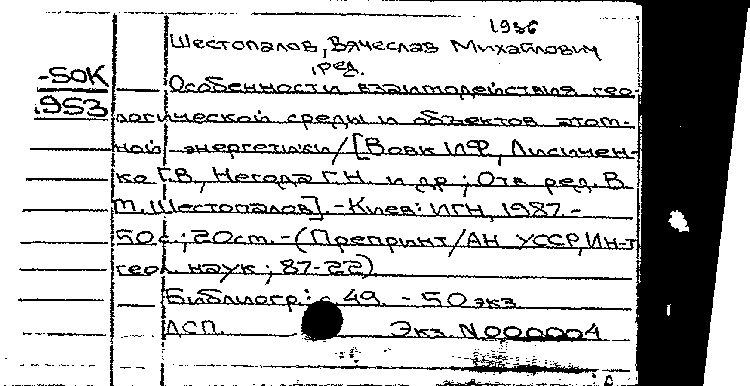 1936
Шестопалов, Вячеслав Михайлович
, ред.
-50К
.953
Особенности взаимодействия гео-
логической среды и объектов атом-
ной энергетики/[Вовк И.Ф., Лисичен-
ко Г.В., Негода Г.Н. и др ; Отв ред. В.
М. Шестопалов]. -Киев: ИГН, 1987.-
50 с.; 20 см. - (Препринт/АН УССР, Ин-т
геол. наук ; 87-22)
Библиогр.: с. 49. - 50 экз
ДСП. Экз N000004